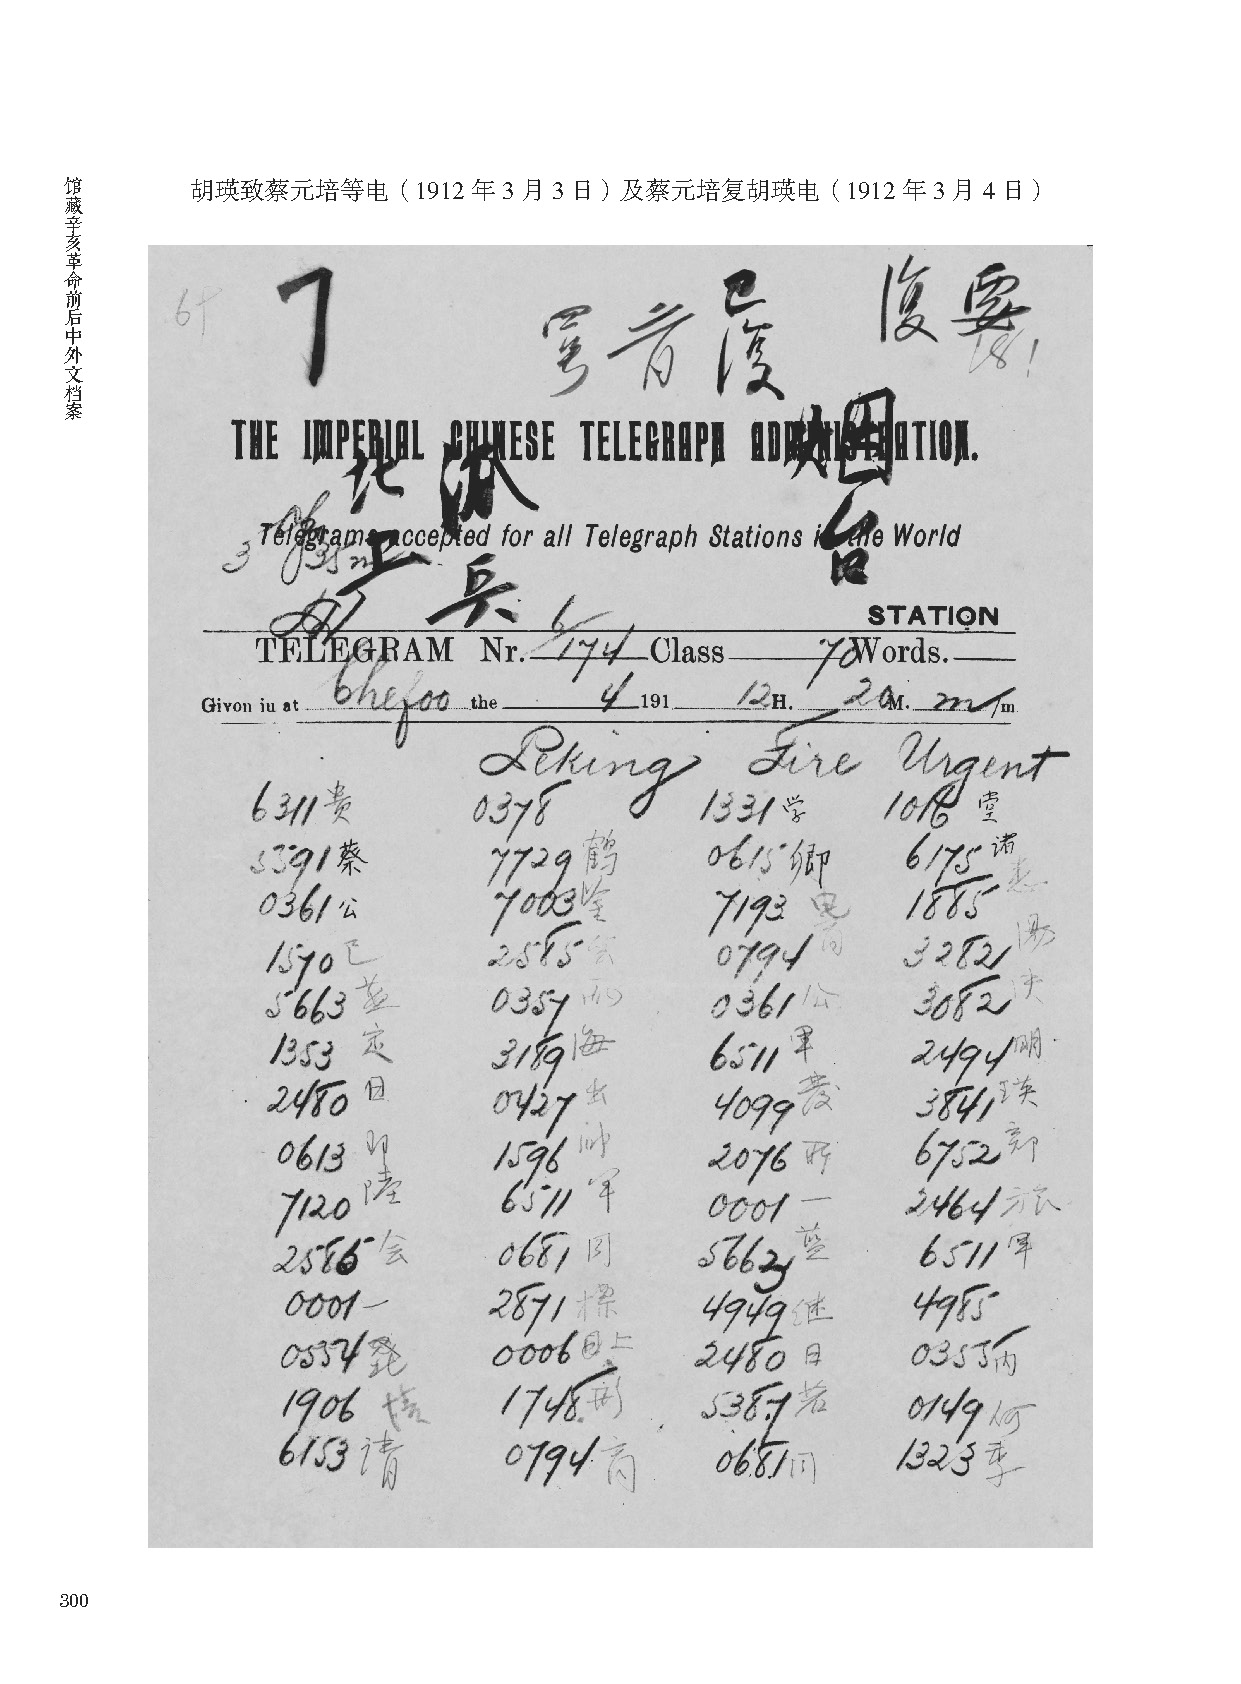 馆藏辛亥革命前后中外文档案
胡瑛致蔡元培等电（1912 年 3 月 3 日）及蔡元培复胡瑛电（1912 年 3 月 4 日）
復要
已復
烟台
THE IMPERIAL CHINESE TELEGRAPH ADMINISTRATION.
Telegrams accepted for all Telegraph Stations in the World
兵
STATION
TELEGRAM Nr. 6/174 Class 70 Words.
Givon iu at Chefoo the 4 191 12 H. 20 M. m/m
Peking Fire Urgent
6311 貴 0378 1331 学 1016 堂
5591 蔡 7729 鹤 0615 卿 6175 诸
0361 公 7003 鉴 7193 電 1885 悉
1570 已 2585 0794 3282
5663 蓝 0357 0361 公 3082
1353 定 3189 海 6511 軍 2494 明
2480 日 0427 出 4099 發 3841 瑛
0613 即 1596 帅 2076 所 6752 部
7120 陸 6511 军 0001 一 2464 旅
2585 会 0681 同 5663 蓝 6511 軍
0001 一 2871 標 4949 继 4985
0554 0006 上 2480 日 0355 内
1906 1748 形 5387 若 0149 何
6153 请 0794 商 0681 同 1323 季
300